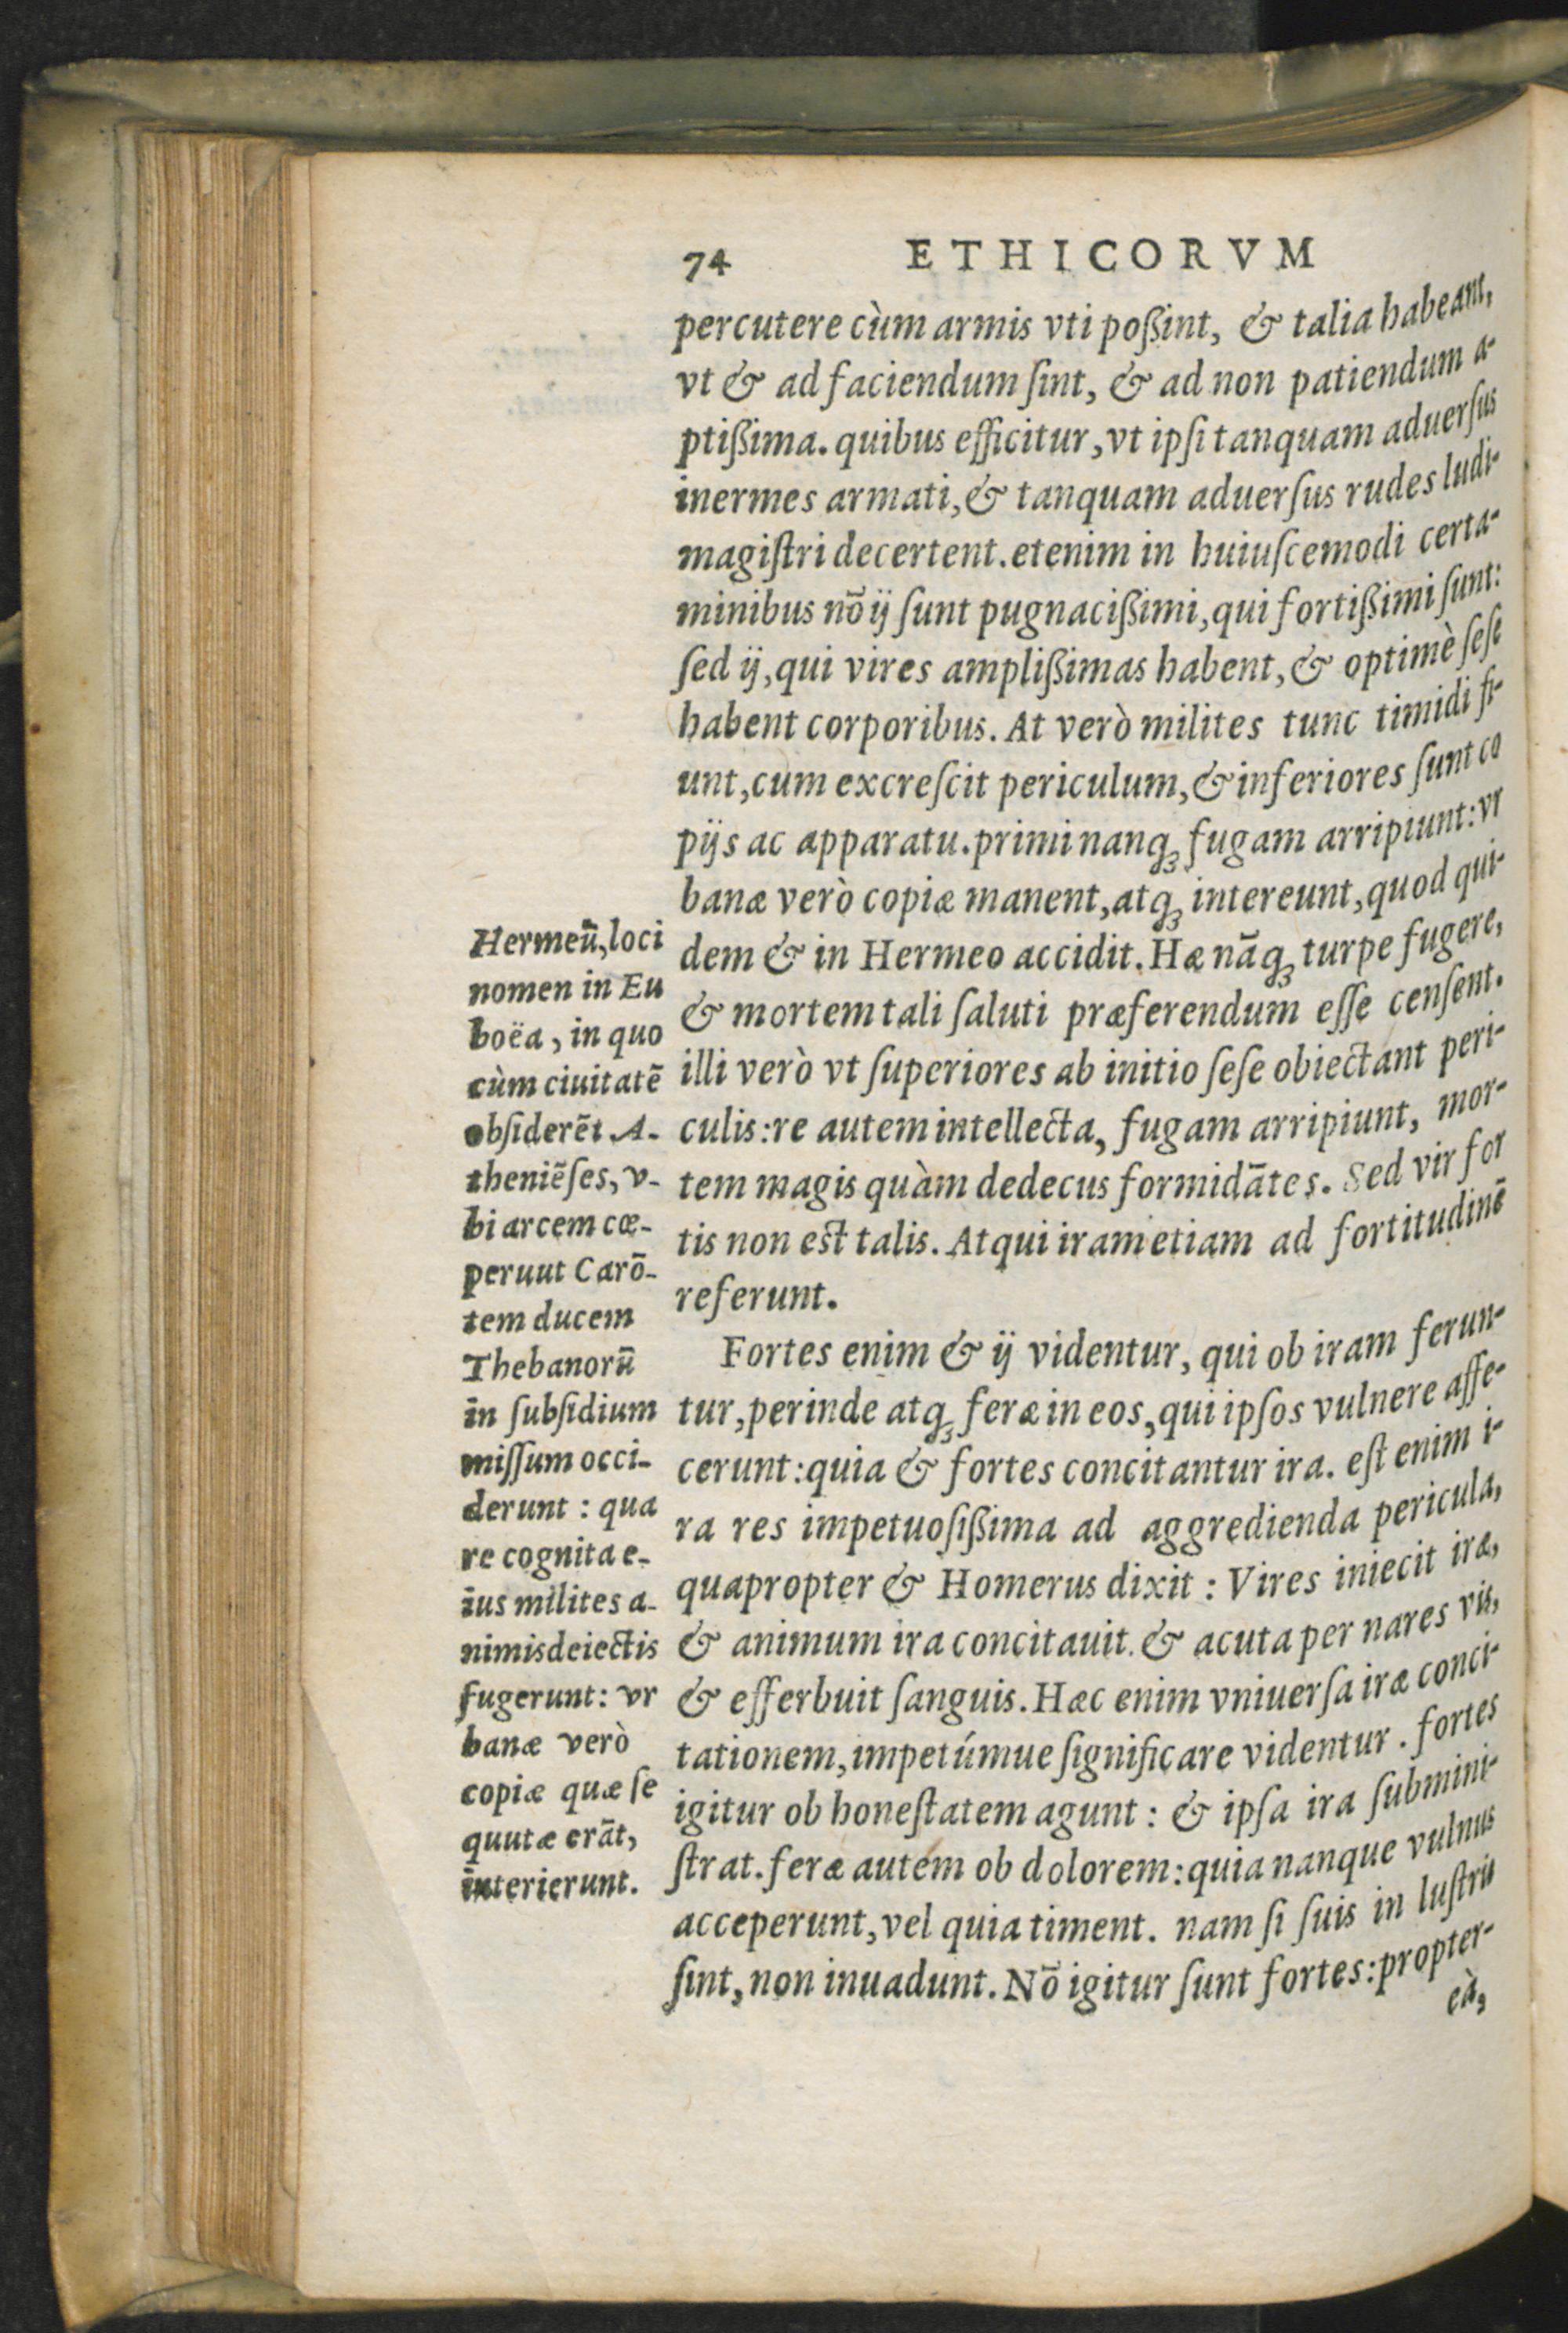 74 ETHICORVM
percutere cùm armis vti poßint, & talia habeant,
vt & ad faciendum ſint, & ad non patiendum a-
ptißima. quibus efficitur, vt ipſi tanquam aduerſus
inermes armati, & tanquam aduerſus rudes ludi-
magiſtri decertent. etenim in huiuſcemodi certa-
minibus nō ij ſunt pugnacißimi, qui fortißimi ſunt:
ſed ij, qui vires amplißimas habent, & optimè ſeſe
habent corporibus. At verò milites tunc timidi fi-
unt, cum excreſcit periculum, & inferiores ſunt co
pijs ac apparatu. primi nanq; fugam arripiunt: vr
banæ verò copiæ manent, atq; intereunt, quod qui-
dem & in Hermeo accidit. Hæ nāq; turpe fugere,
& mortem tali ſaluti præferendum eſſe cenſent.
illi verò vt ſuperiores ab initio ſeſe obiectant peri-
culis: re autem intellecta, fugam arripiunt, mor-
tem magis quàm dedecus formidātes. Sed vir for
tis non est talis. Atqui iram etiam ad fortitudinē
referunt.
Fortes enim & ij videntur, qui ob iram ferun-
tur, perinde atq; feræ in eos, qui ipſos vulnere affe-
cerunt: quia & fortes concitantur ira. eſt enim i-
ra res impetuoſißima ad aggredienda pericula,
quapropter & Homerus dixit: Vires iniecit iræ,
& animum ira concitauit. & acuta per nares vis,
& efferbuit ſanguis. Hæc enim vniuerſa iræ conci-
tationem, impetúmue ſignificare videntur. fortes
igitur ob honeſtatem agunt: & ipſa ira ſubmini-
ſtrat. feræ autem ob dolorem: quia nanque vulnus
acceperunt, vel quia timent. nam ſi ſuis in luſtris
ſint, non inuadunt. Nō igitur ſunt fortes: propter-
eà,
Hermeū, loci
nomen in Eu
boëa, in quo
cùm ciuitatē
obſiderēt A-
theniēſes, v-
bi arcem cœ-
peruut Carō-
tem ducem
Thebanorū
in ſubſidium
miſſum occi-
derunt: qua
re cognita e-
ius milites a-
nimis deiectis
fugerunt: vr
banæ verò
copiæ quæ ſe
quutæ erāt,
interierunt.